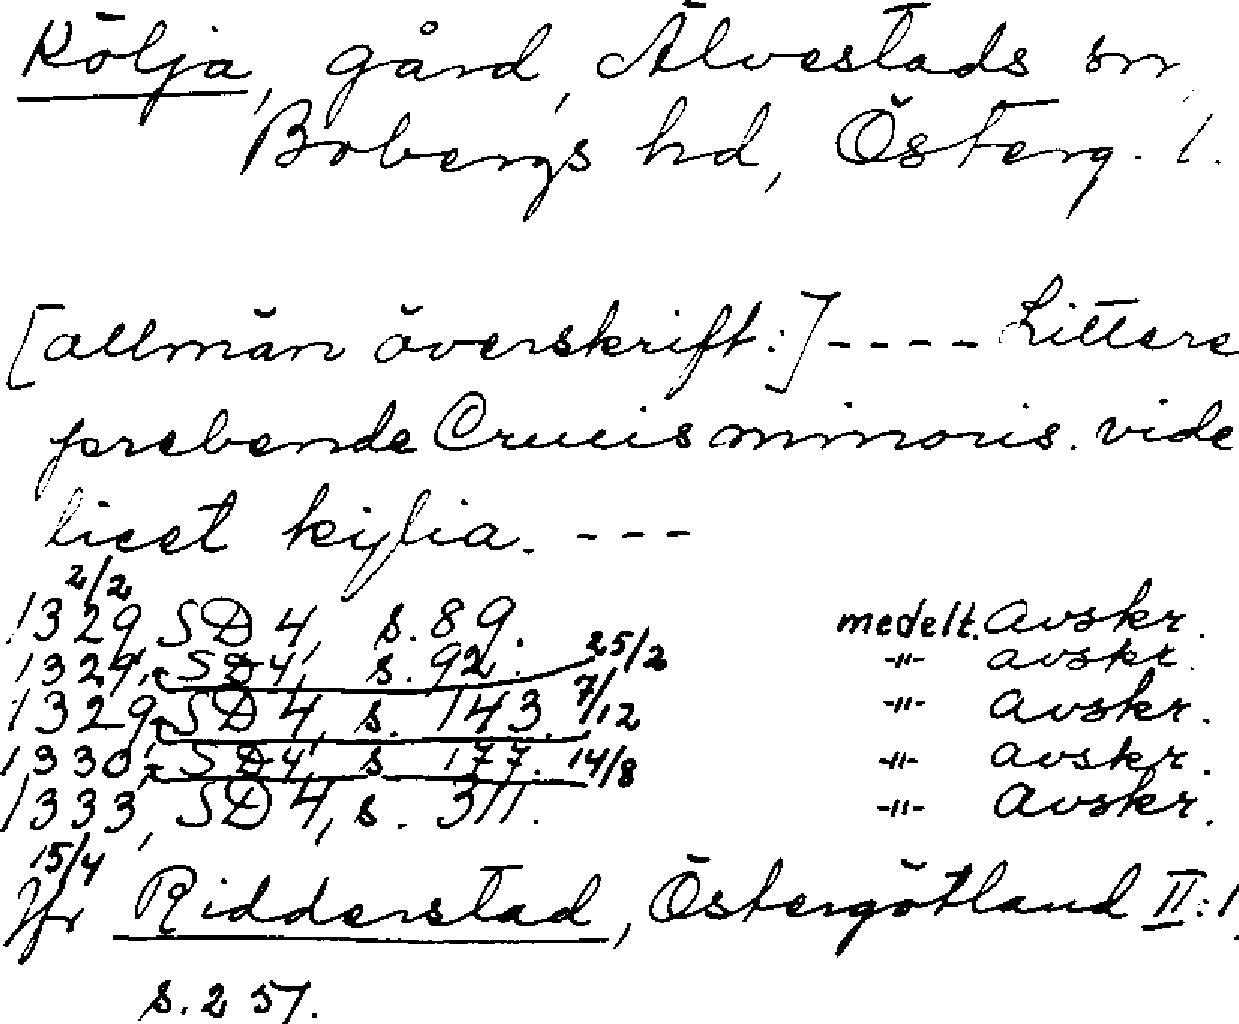 Kölja, gård, Älvestads sn,
Bobergs hd, Österg. l.
[allmän överskrift:] ---- Littere
prebende Crucis minoris. vide
licet kiflia. ---
2/2
1329, SD 4, s. 89. medelt. avskr.
1329, SD 4, s. 92. 25/2 -"- avskr.
1329, SD 4, s. 143. 7/12 -"- avskr.
1330, SD 4, s. 177. 14/8 -"- avskr.
1333, SD 4, s. 311. -"- avskr.
15/4
Jfr Ridderstad, Östergötland II:1,
s. 257.